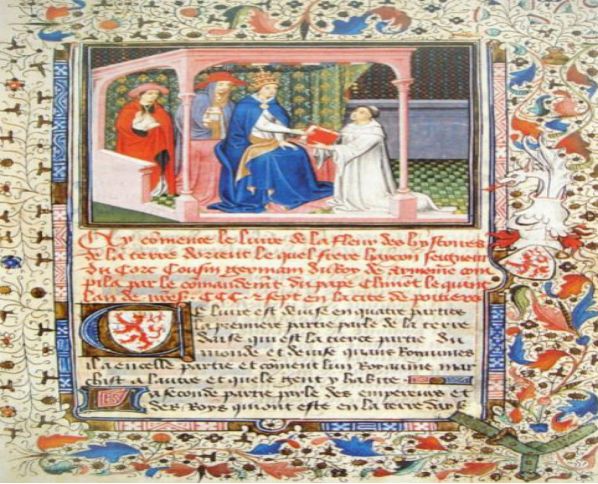 Cy comence le livre de la fleur des hystores
de la terre dorient le quel frere haycon seigneur
du Corc Cousin germain du Roy de Armenie com
pila par le comandement du pape Climet le quint
lan de nres CCC z sept en la cite de poitiers
Ce livre est devise en quatre parties
la premiere partie parle de la terre
dasie qui est la tierce partie du
monde et devise quans Royaumes
il a en celle partie et coment lun Royaume mar
chist a lautre et quele gent y habite
La seconde partie parle des empereurs et
des Roys qui ont este en la terre dasie